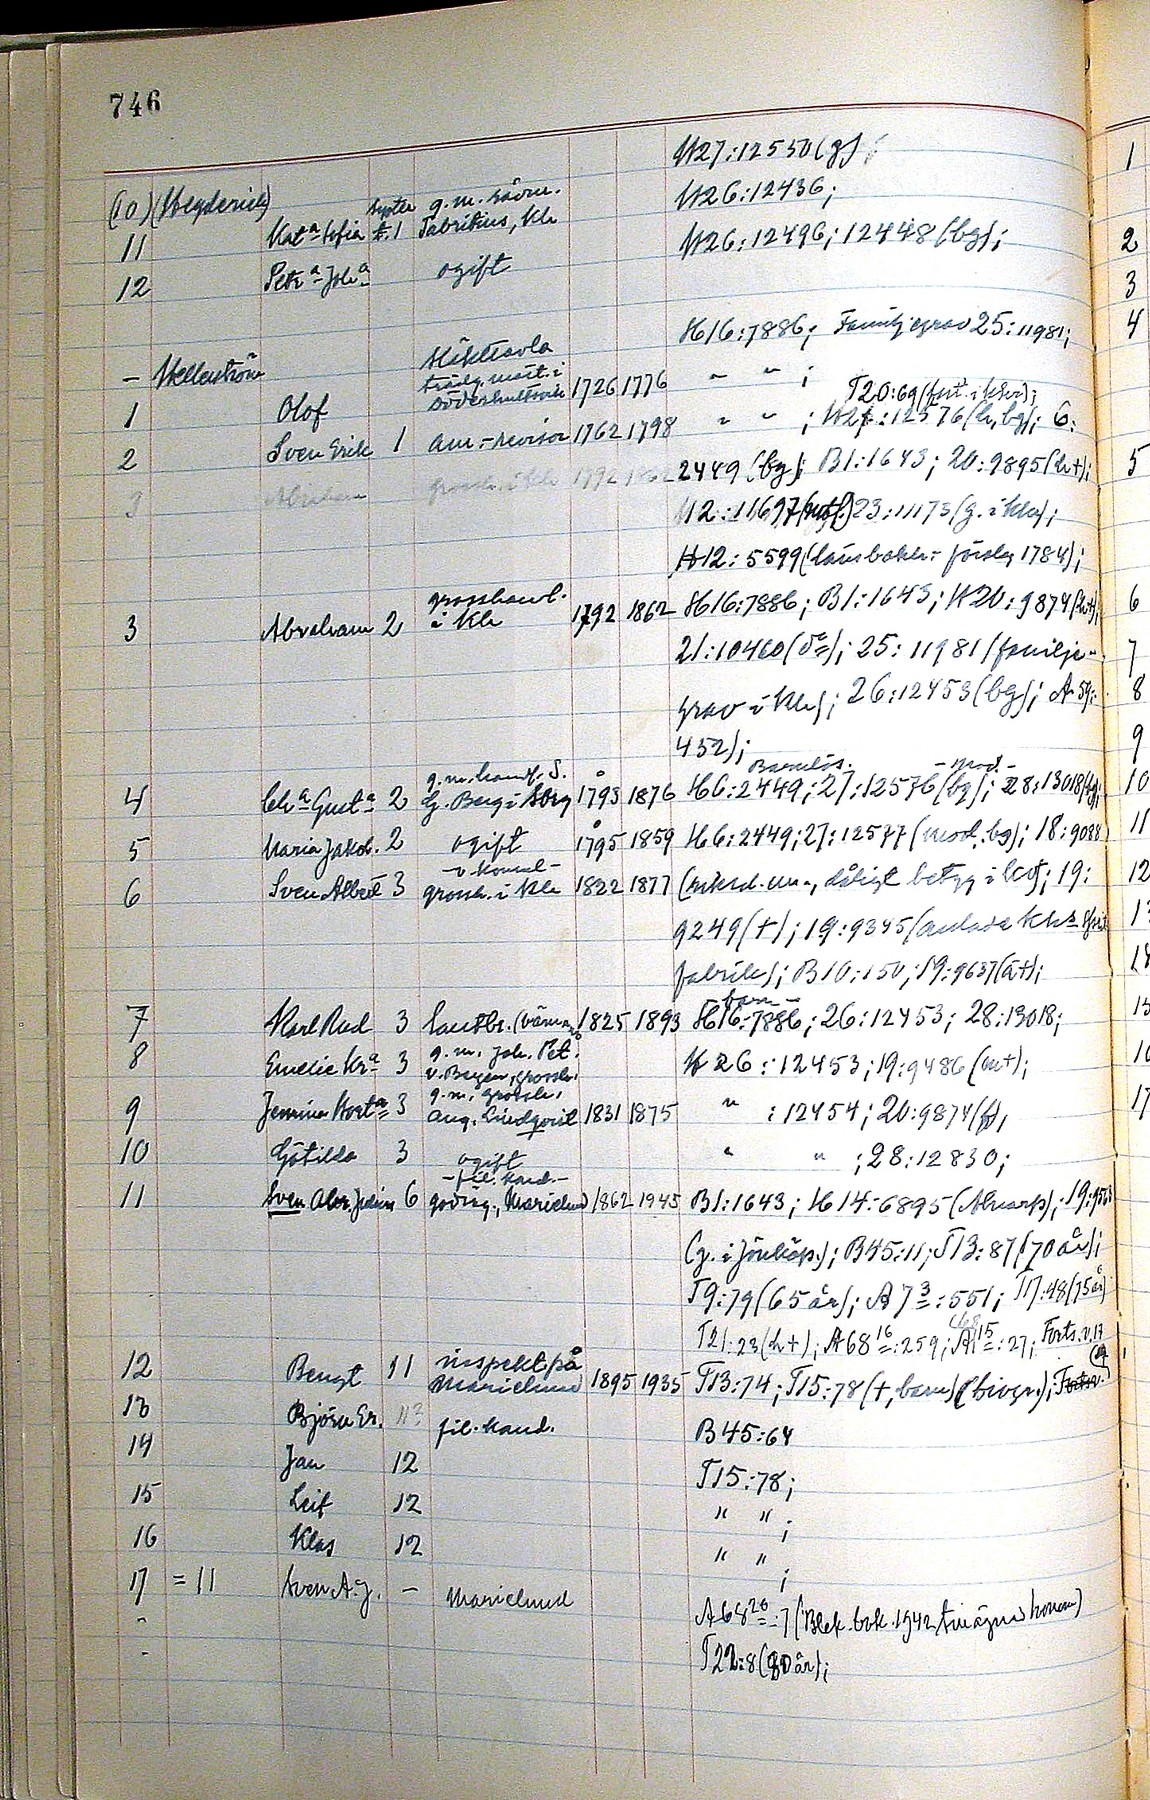 746
H27:12550(g)
(10) (Hegderich) H26:12436;
11 Kat<sup>a</sup> Sofia g.m. Fabritius, Klr H26:12496; 12448 (bg);
12 Petr<sup>a</sup> Joh<sup>a</sup> ogift
H16:7886; Familjegrav 25:11981;
– Hellerström Släkttavla
1 Olof trädg. mäst. i 1726 1776 " " ; T20:69
2 Sven Erik 1 aur.-revisor 1762 1798 " " ; H27:12576 (h, bg); 6:
3 Abraham grossh. i Klr 1792 1862 2449 (bg); B1:1643; 20:9895 (h+);
H2:11697 23:11173 (g. i Klr);
H12:5599 1784);
3 Abraham 2 grosshandl. i Klr 1792 1862 H16:7886; B1:1643; H20:9874 (h+);
21:10460 (d<sup>o</sup>); 25:11981 (familje-
grav i Klr); 26:12453 (bg); A 59:
452);
Barnlös. – mod. –
4 Ch<sup>a</sup> Gust<sup>a</sup> 2 g.m. handl. S. G. Berg i 1793 1876 H6:2449; 27:12576 (bg); 28:13018 (bg);
5 Maria Jakob. 2 ogift 1795 1859 H6:2449; 27:12577 (mod. bg); 18:9088
6 Sven Albert 3 – v. konsul – grossh. i Klr 1822 1877 (riksd. m., dåligt betyg i ); 19:
9249 (+); 19:9345 (anlade Klr
fabrik); B10:150; 19:9637 (ä+);
barn –
7 Karl Rud 3 lantbr. 1825 1893 H16:7886; 26:12453; 28:13018;
8 Emelie Kr<sup>a</sup> 3 g.m. Joh. Pet. v. Bergen, grossh. H26:12453; 19:9486 (m+);
9 Jemina Hort<sup>a</sup> 3 g.m. grossh. Aug. Lindqvist 1831 1875 " :12454; 20:9874 (f);
10 Götilda 3 ogift " " ; 28:12830;
11 Sven Abr. Julius 6 – fil. kand. – godsäg., Marielund 1862 1945 B1:1643; H14:6895 (Alnarp); 19:9553
(g. i Jönköp.); B45:11; T13:87 (70 år);
T9:79 (65 år); A 7<sup>3</sup>:551; T17:48 (75 år)
T21:23 (h+); A68<sup>16</sup>:259; A<sup>15</sup>:27; Forts. v. 17
12 Bengt 11 inspekt. på Marielund 1895 1935 T13:74; T15:78 (+, barn) (biogr.);
13 Björn Er. 11? fil. kand. B45:64
14 Jan 12 T15:78;
15 Leif 12 " " ;
16 Klas 12 " " ;
17 = 11 Sven A. J. – Marielund A68<sup>20</sup>:7 (Blek. bok. 1942 tillägnad honom)
T22:8 (80 år);
1
2
3
4
5
6
7
8
9
10
11
12